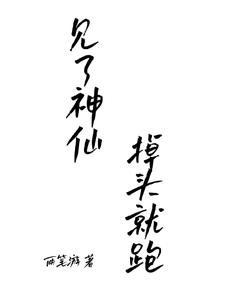 见了神仙
掉头就跑
西笔游 著